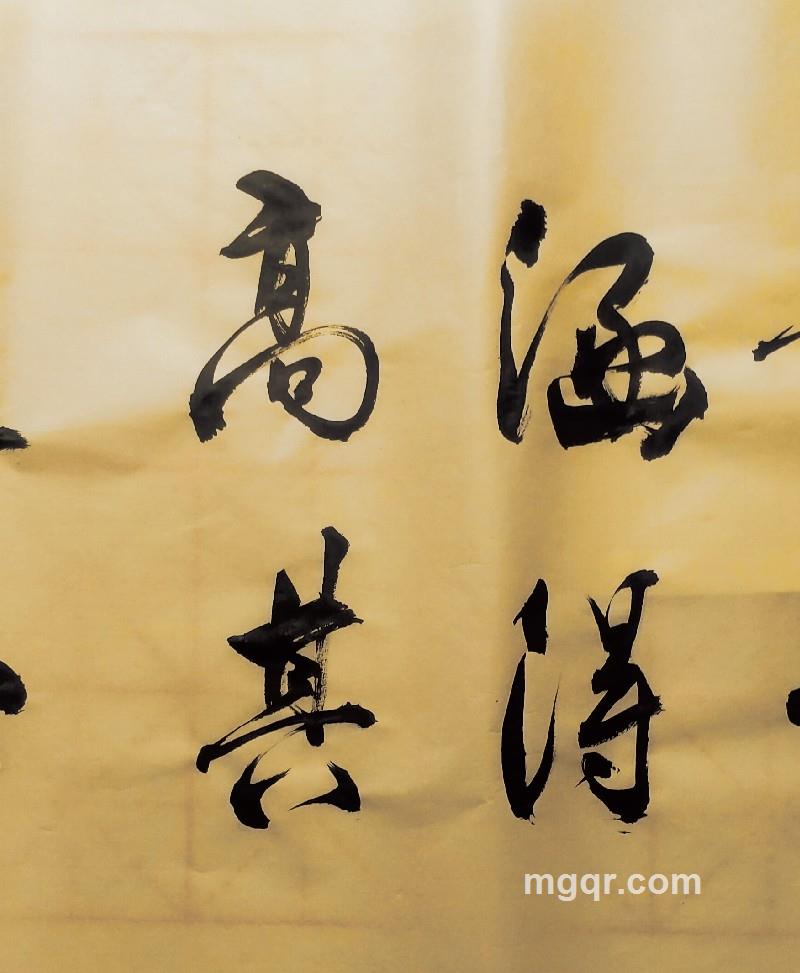 涵得
高其
mgqr.com